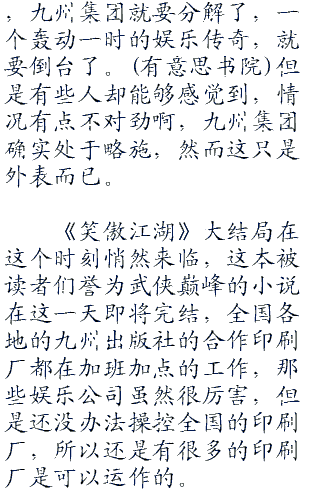 ，九州集团就要分解了，一
个轰动一时的娱乐传奇，就
要倒台了。(有意思书院)但
是有些人却能够感觉到，情
况有点不对劲啊，九州集团
确实处于略施，然而这只是
外表而已。
《笑傲江湖》大结局在
这个时刻悄然来临，这本被
读者们誉为武侠巅峰的小说
在这一天即将完结，全国各
地的九州出版社的合作印刷
厂都在加班加点的工作，那
些娱乐公司虽然很厉害，但
是还没办法操控全国的印刷
厂，所以还是有很多的印刷
厂是可以运作的。